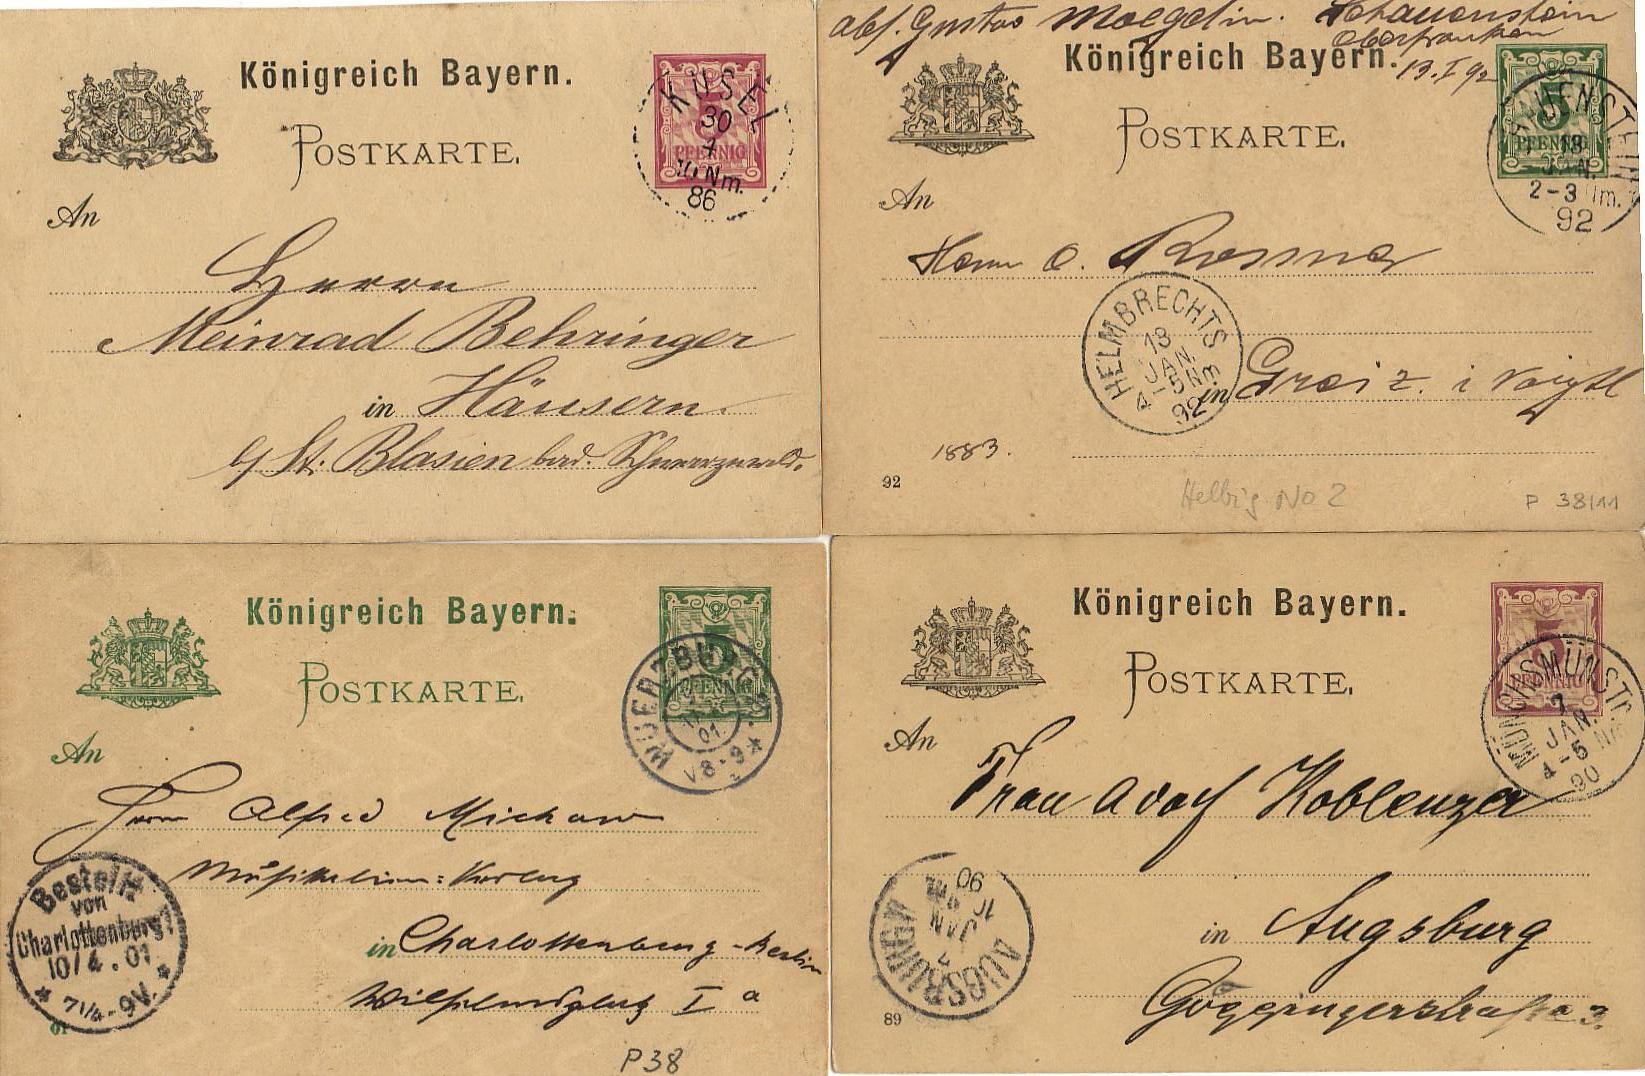 Königreich Bayern.
POSTKARTE.
5
PFENNIG
KUSEL
30
7
Nm.
86
An
Herrn
Meinrad Behringer
in Häusern
b/ St. Blasien bad. Schwarzwald.
abs. Gustav Moegelin. Schauenstein
Oberfranken
13.I 92
Königreich Bayern.
POSTKARTE.
5
PFENNIG
JAN.
2-3
92
An
Herrn O.
HELMBRECHTS
13
JAN.
4-5 Nm
92
in Greiz. i Voigtl
1883.
92
Helbig No 2
P 38/11
Königreich Bayern.
POSTKARTE.
5
PFENNIG
WUERZBURG
01
V8-9
An
Herrn Alfred Michow
Musikalien: Verlag
in Charlottenburg-Berlin
Wilhelmsplatz I a
Bestellt
von
Charlottenburg
10/4.01
7 1/4-9V.
01
P38
Königreich Bayern.
POSTKARTE.
5
PFENNIG
MÜNCHSMÜNSTER
7
JAN.
4-5 NM
90
An
Frau Adolf Koblenzer
in Augsburg
Göggingerstraße 3.
AUGSBURG
7
JAN
10
90
89